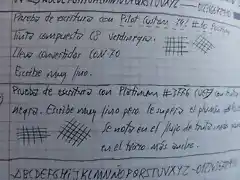 Prueba de escritura con Pilot Custom
Tinta compuesta CB verdinegra.
Lleva convertidor CON-70
Escribe muy fino.
Prueba de escritura con Platinum #3776 (UEF) con tinta
negra. Escribe muy fino pero le supera el
Se nota en el flujo de tinta
en el trazo más ancho.
ABCDEFGHIJKLMNÑOPQRSTUVXYZ - 0123456789